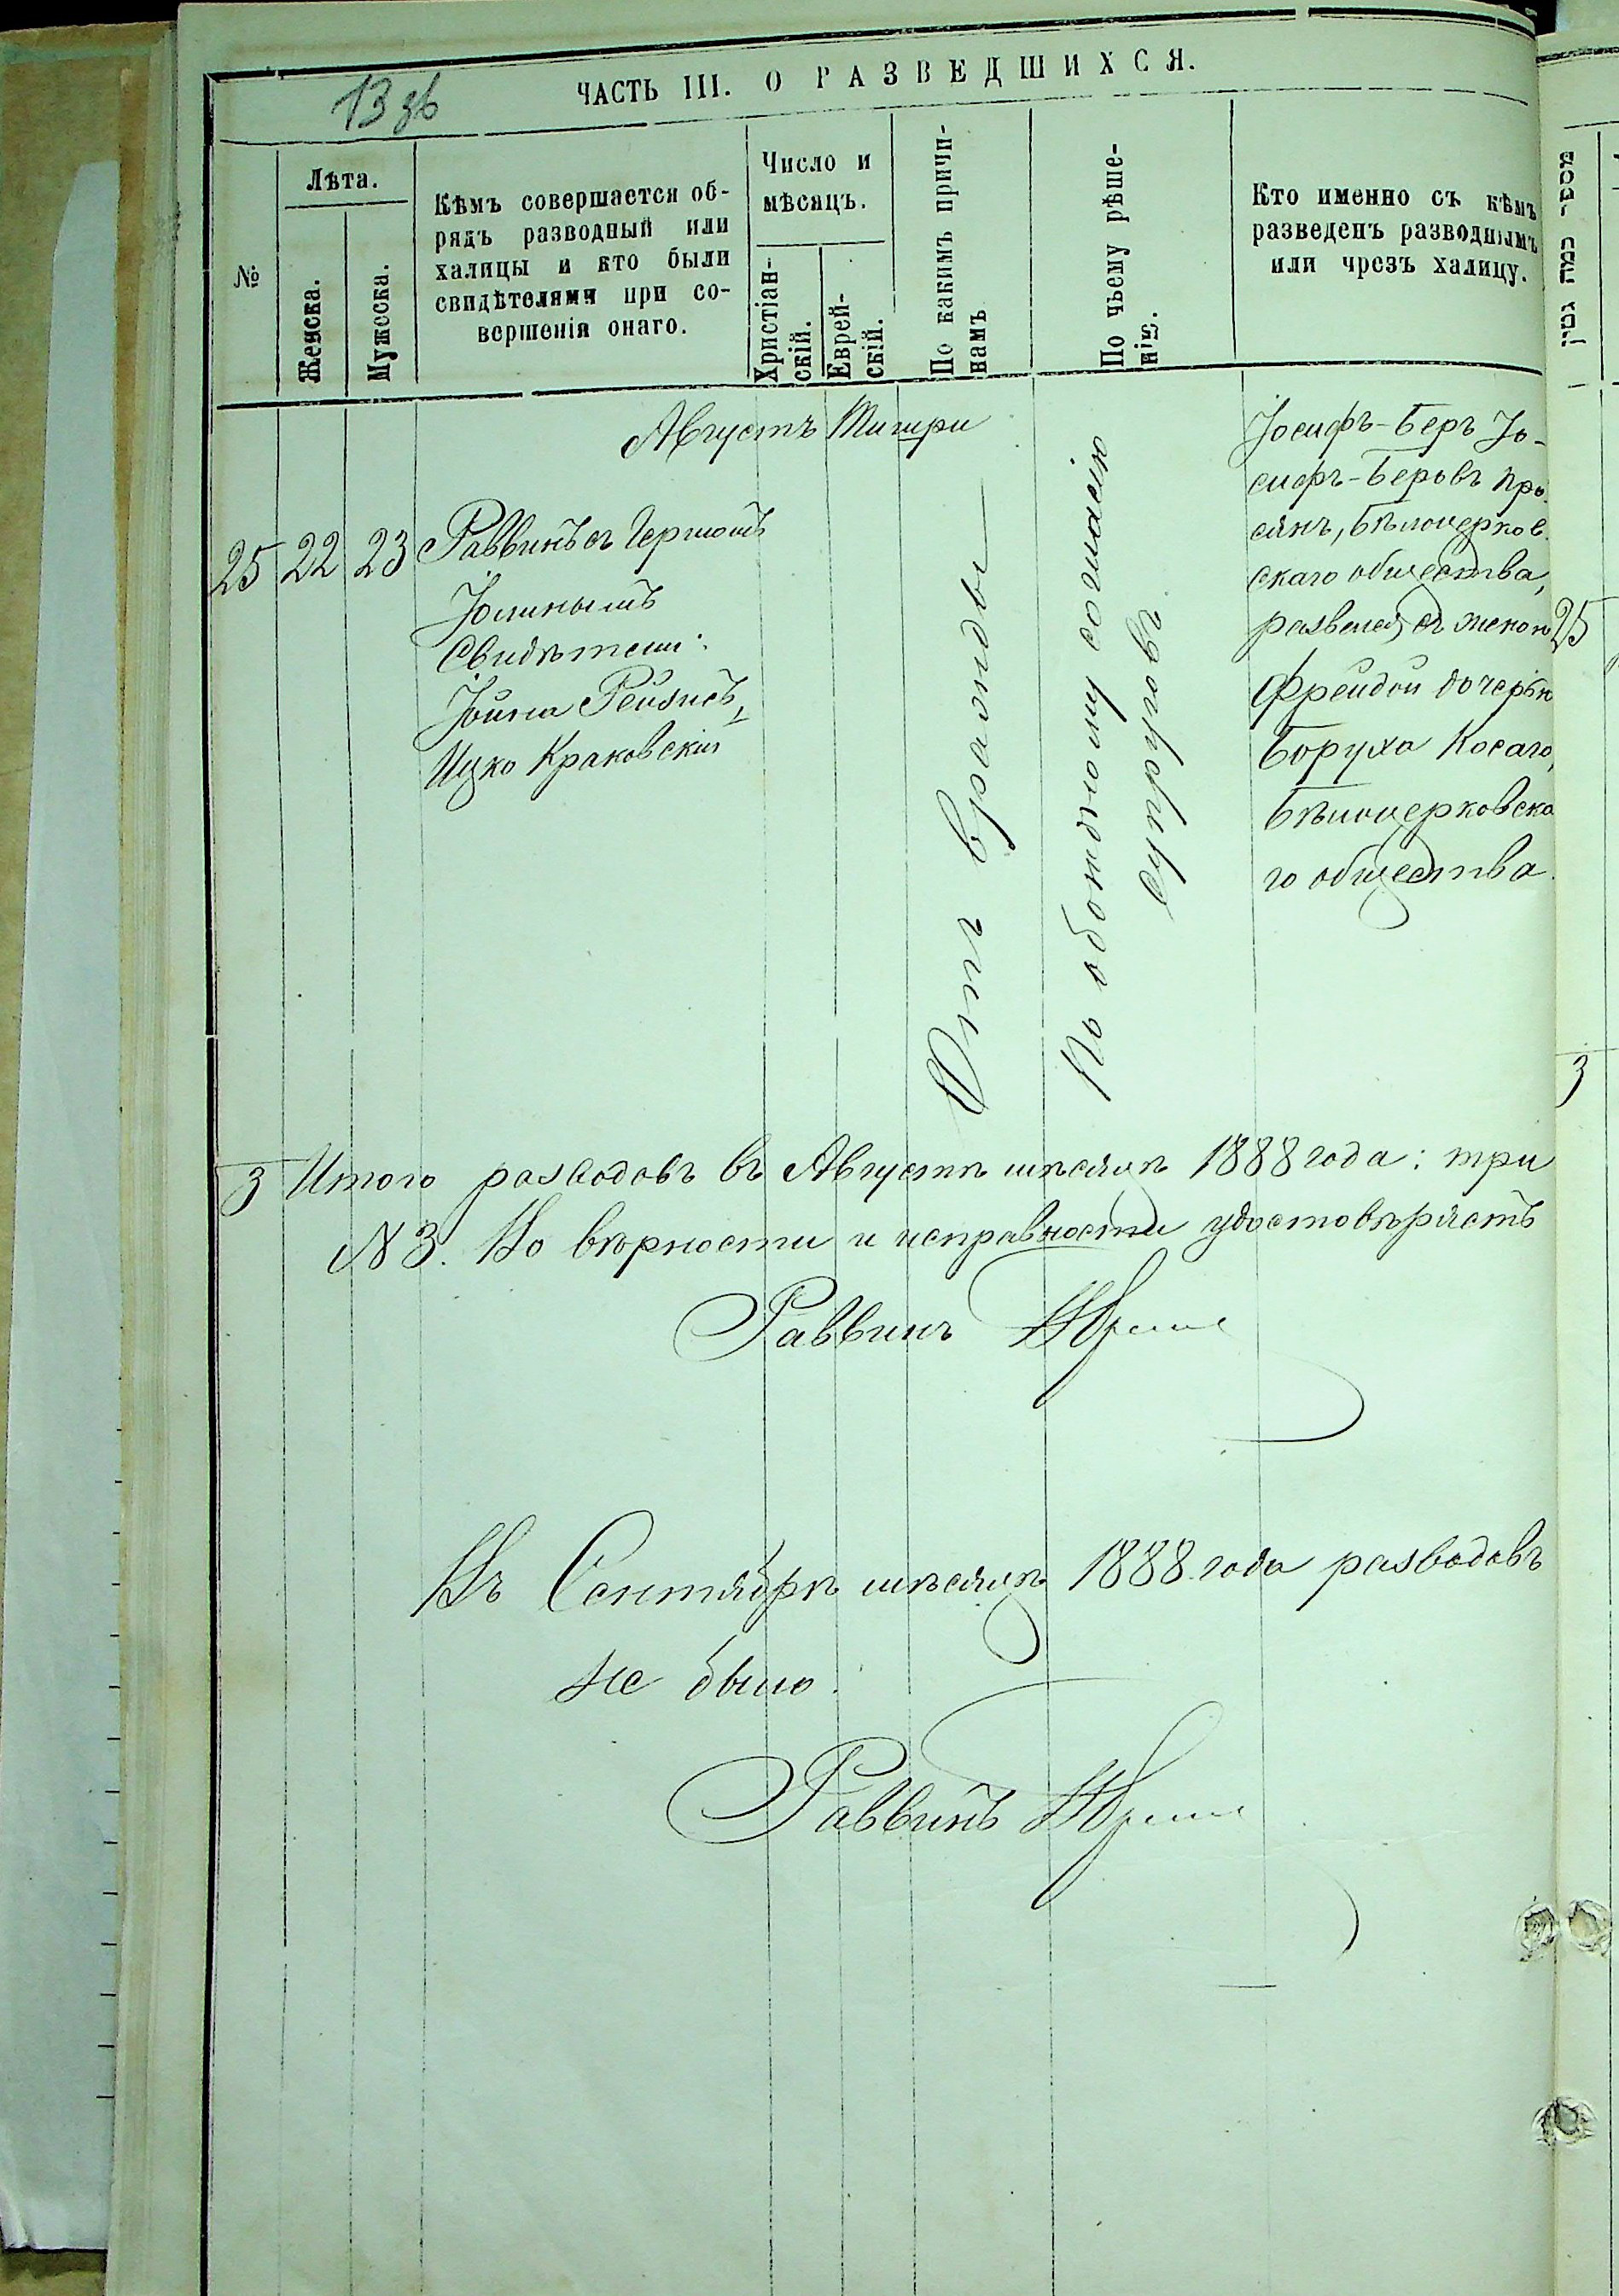 13 зв
ЧАСТЬ III. О РАЗВЕДШИХСЯ.
№
Лѣта.
Женска.
Мужеска.
Кѣмъ совершается об-
рядъ разводный или
халицы и кто были
свидѣтелями при со-
вершенія онаго.
Число и
мѣсяцъ.
Христіан-
скій.
Еврей-
скій.
По какимъ причи-
намъ
По чьему рѣше-
нію.
Кто именно съ кѣмъ
разведенъ разводнымъ
или чрезъ халицу.
מספר כמה גטין
Августъ Тишри
25 22 23
Раввинъ съ
Свидѣтели:
Иойна
Ицко Краковскій
Отъ вражды
По обоюдному согласію
супруговъ
Іосифъ-Беръ Іо-
сифъ-Беровъ Про-
сянъ, Бѣлоцерков-
скаго общества,
развелся съ женою
Фрейдой дочерью
Боруха Косаго,
Бѣлоцерковска
го общества.
25
3
3 Итого разводовъ въ Августѣ мѣсяцѣ 1888 года: три
№ 3. Во вѣрности и исправности удостовѣряетъ
Раввинъ
Въ Сентябрѣ мѣсяцѣ 1888 года разводовъ
не было.
Раввинъ